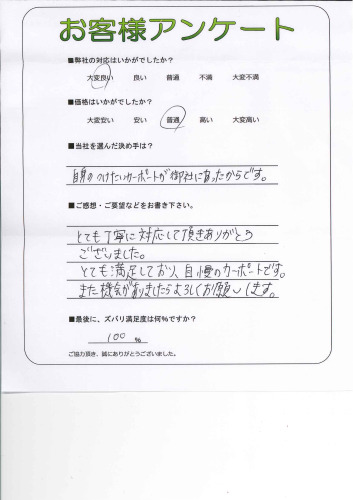 お客様アンケート
■弊社の対応はいかがでしたか？
大変良い 良い 普通 不満 大変不満
■価格はいかがでしたか？
大変安い 安い 普通 高い 大変高い
■当社を選んだ決め手は？
自身のつけたいカーポートが御社にあったからです。
■ご感想・ご要望などをお書き下さい。
とても丁寧に対応して頂きありがとう
ございました。
とても満足しており、自慢のカーポートです。
また機会がありましたらよろしくお願いします。
■最後に、ズバリ満足度は何％ですか？
100 %
ご協力頂き、誠にありがとうございました。